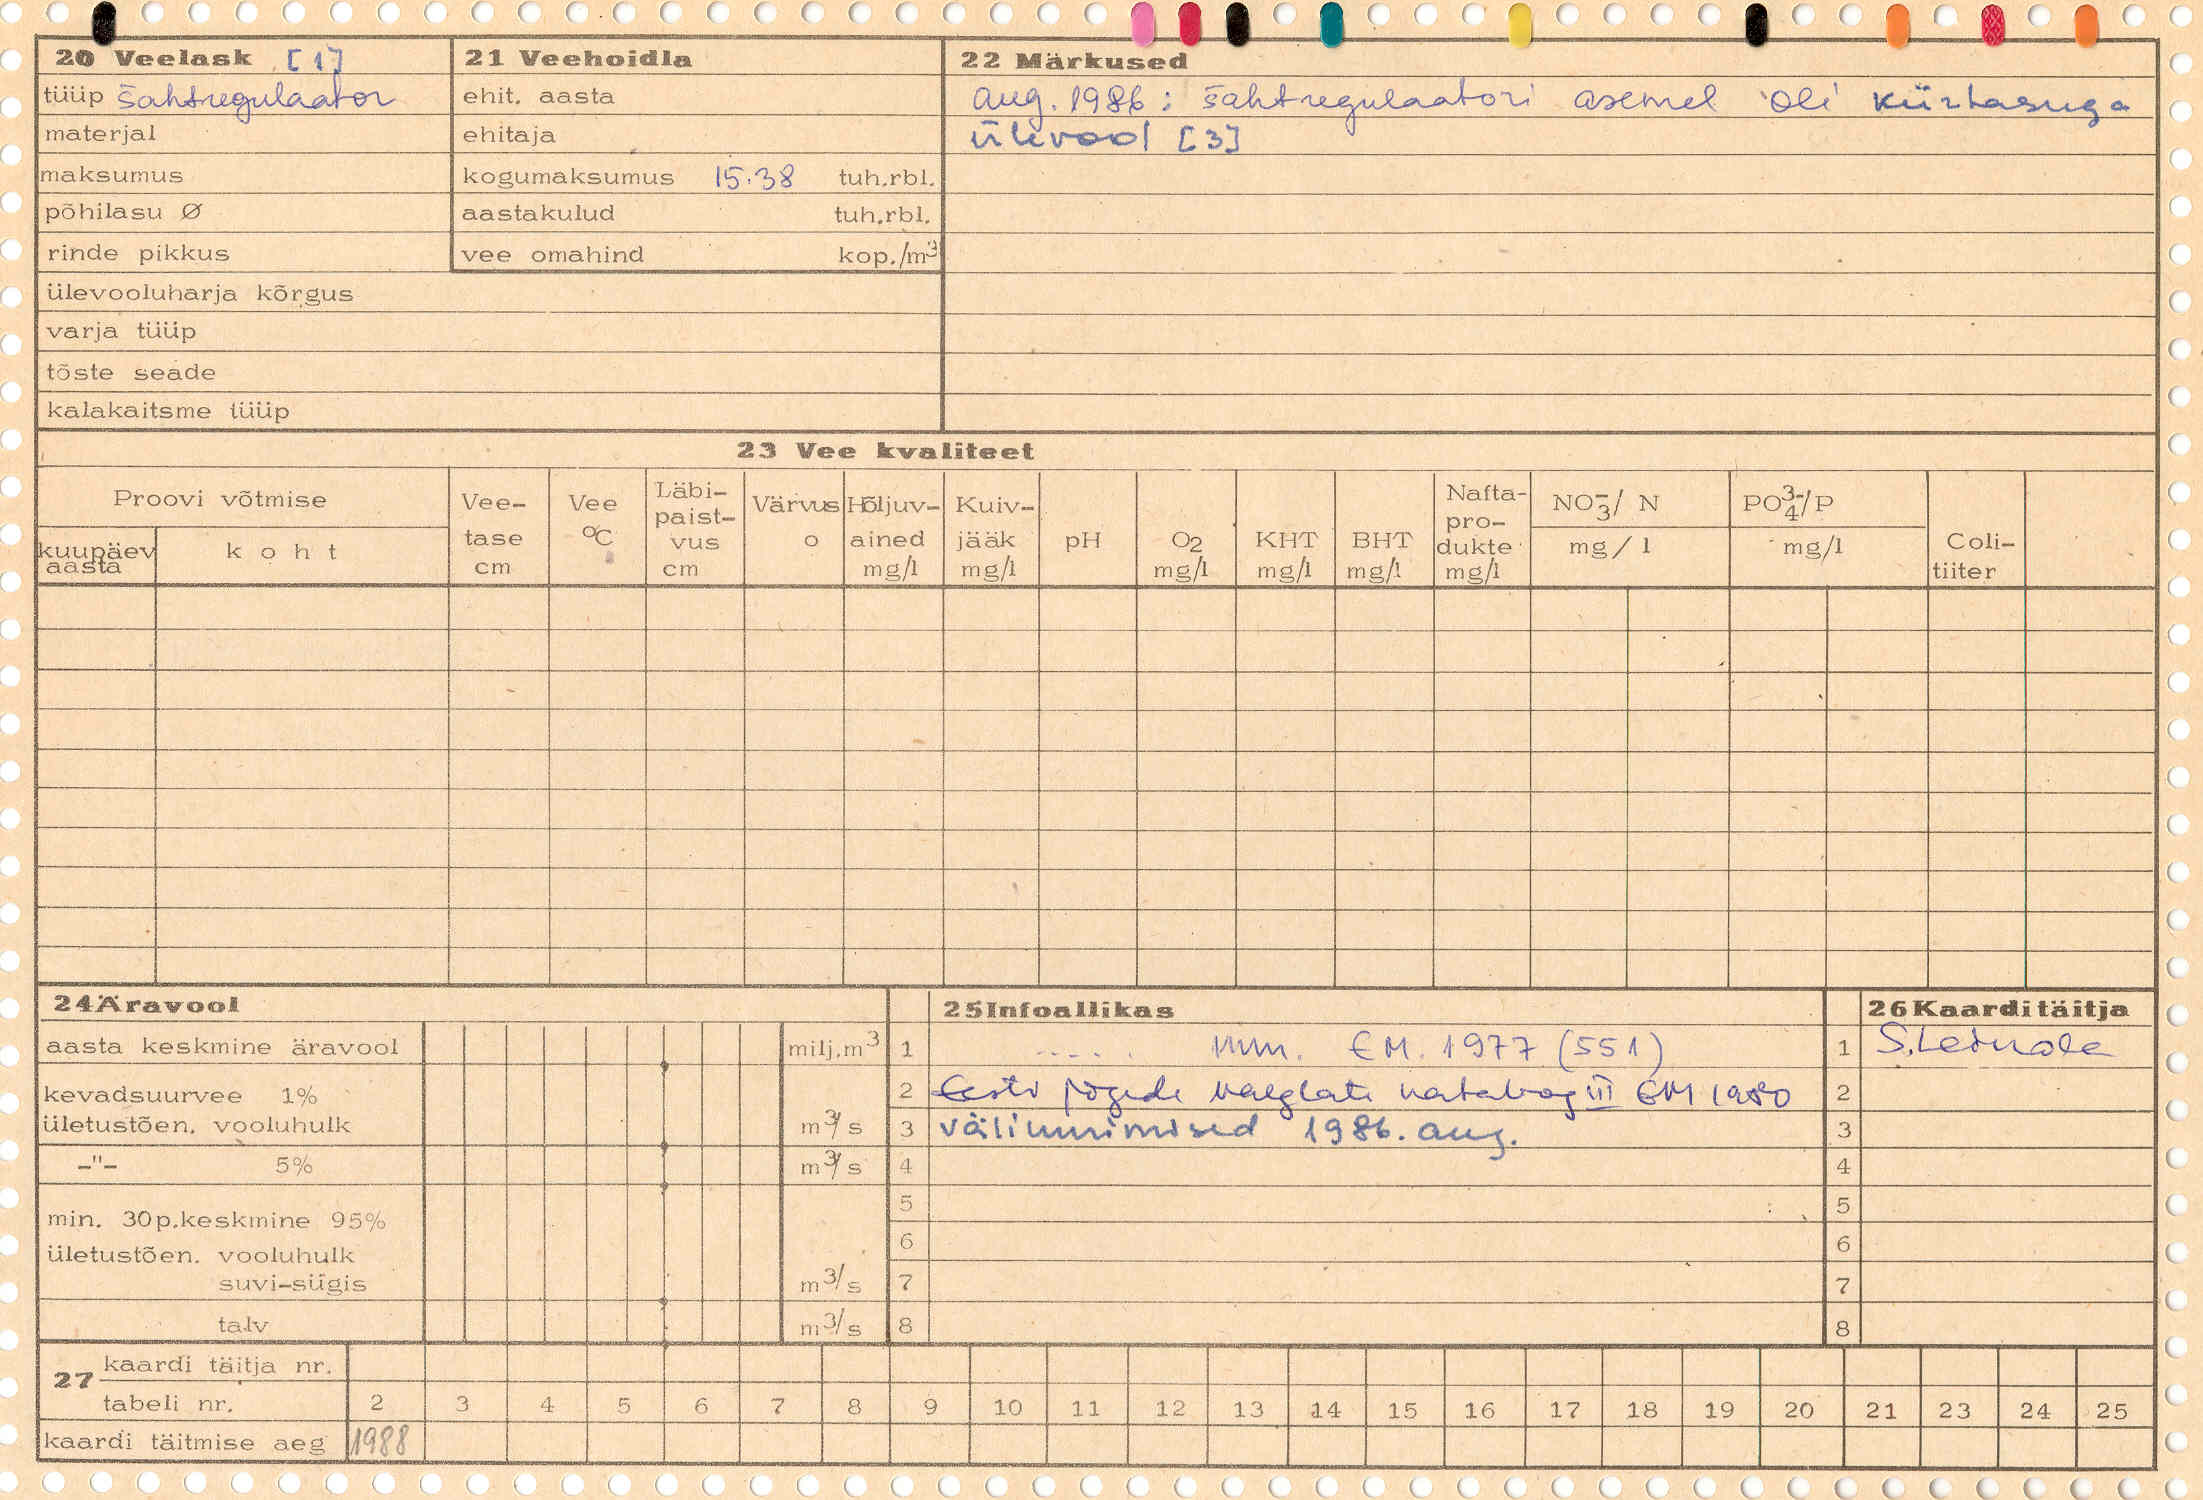 20 Veelask [1]
tüüp šahtregulaator
materjal
maksumus
põhilasu Ø
rinde pikkus
ülevooluharja kõrgus
varja tüüp
tõste seade
kalakaitsme tüüp
21 Veehoidla
ehit. aasta
ehitaja
kogumaksumus 15.38 tuh.rbl.
aastakulud tuh.rbl.
vee omahind kop./m³
22 Märkused
aug. 1986: šahtregulaatori asemel oli
ülevool [3]
23 Vee kvaliteet
Proovi võtmise
kuupäev
aasta
koht
Vee-
tase
cm
Vee
°C
Läbi-
paist-
vus
cm
Värvus
o
Hõljuv-
ained
mg/l
Kuiv-
jääk
mg/l
pH
O2
mg/l
KHT
mg/l
BHT
mg/l
Nafta-
pro-
dukte
mg/l
NO3-/ N
mg/l
PO4 3-/P
mg/l
Coli-
tiiter
24 Äravool
aasta keskmine äravool milj.m³
kevadsuurvee 1%
ületustõen. vooluhulk m³/s
-"- 5% m³/s
min. 30p.keskmine 95%
ületustõen. vooluhulk
suvi-sügis m³/s
talv m³/s
25 Infoallikas
1 ..... EM. 1977 (551)
2 Eesti jõgede valglate kataloog III EM 1980
3 1986. aug.
4
5
6
7
8
26 Kaarditäitja
1 S.
2
3
4
5
6
7
8
27 kaardi täitja nr.
tabeli nr. 2 3 4 5 6 7 8 9 10 11 12 13 14 15 16 17 18 19 20 21 23 24 25
kaardi täitmise aeg 1988